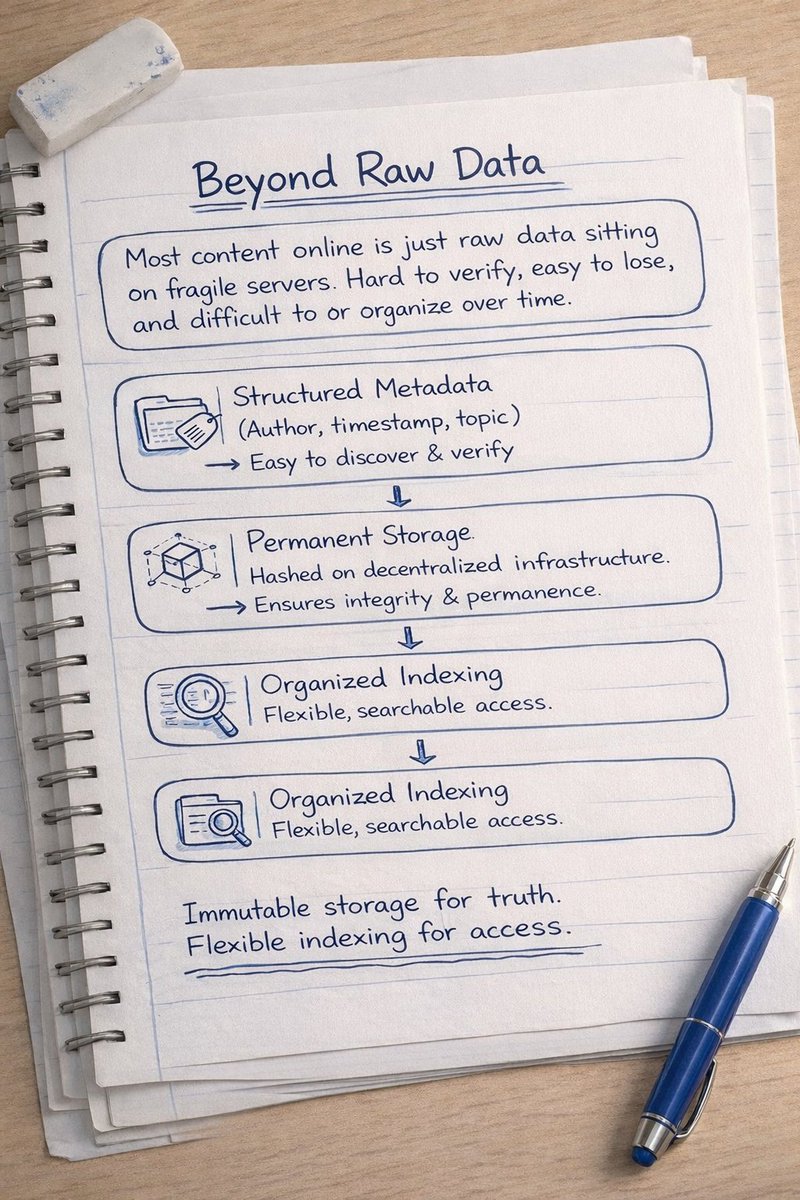 Beyond Raw Data
Most content online is just raw data sitting
on fragile servers. Hard to verify, easy to lose,
and difficult to or organize over time.
Structured Metadata
(Author, timestamp, topic)
→ Easy to discover & verify
Permanent Storage.
Hashed on decentralized infrastructure.
→ Ensures integrity & permanence.
Organized Indexing
Flexible, searchable access.
Organized Indexing
Flexible, searchable access.
Immutable storage for truth.
Flexible indexing for access.